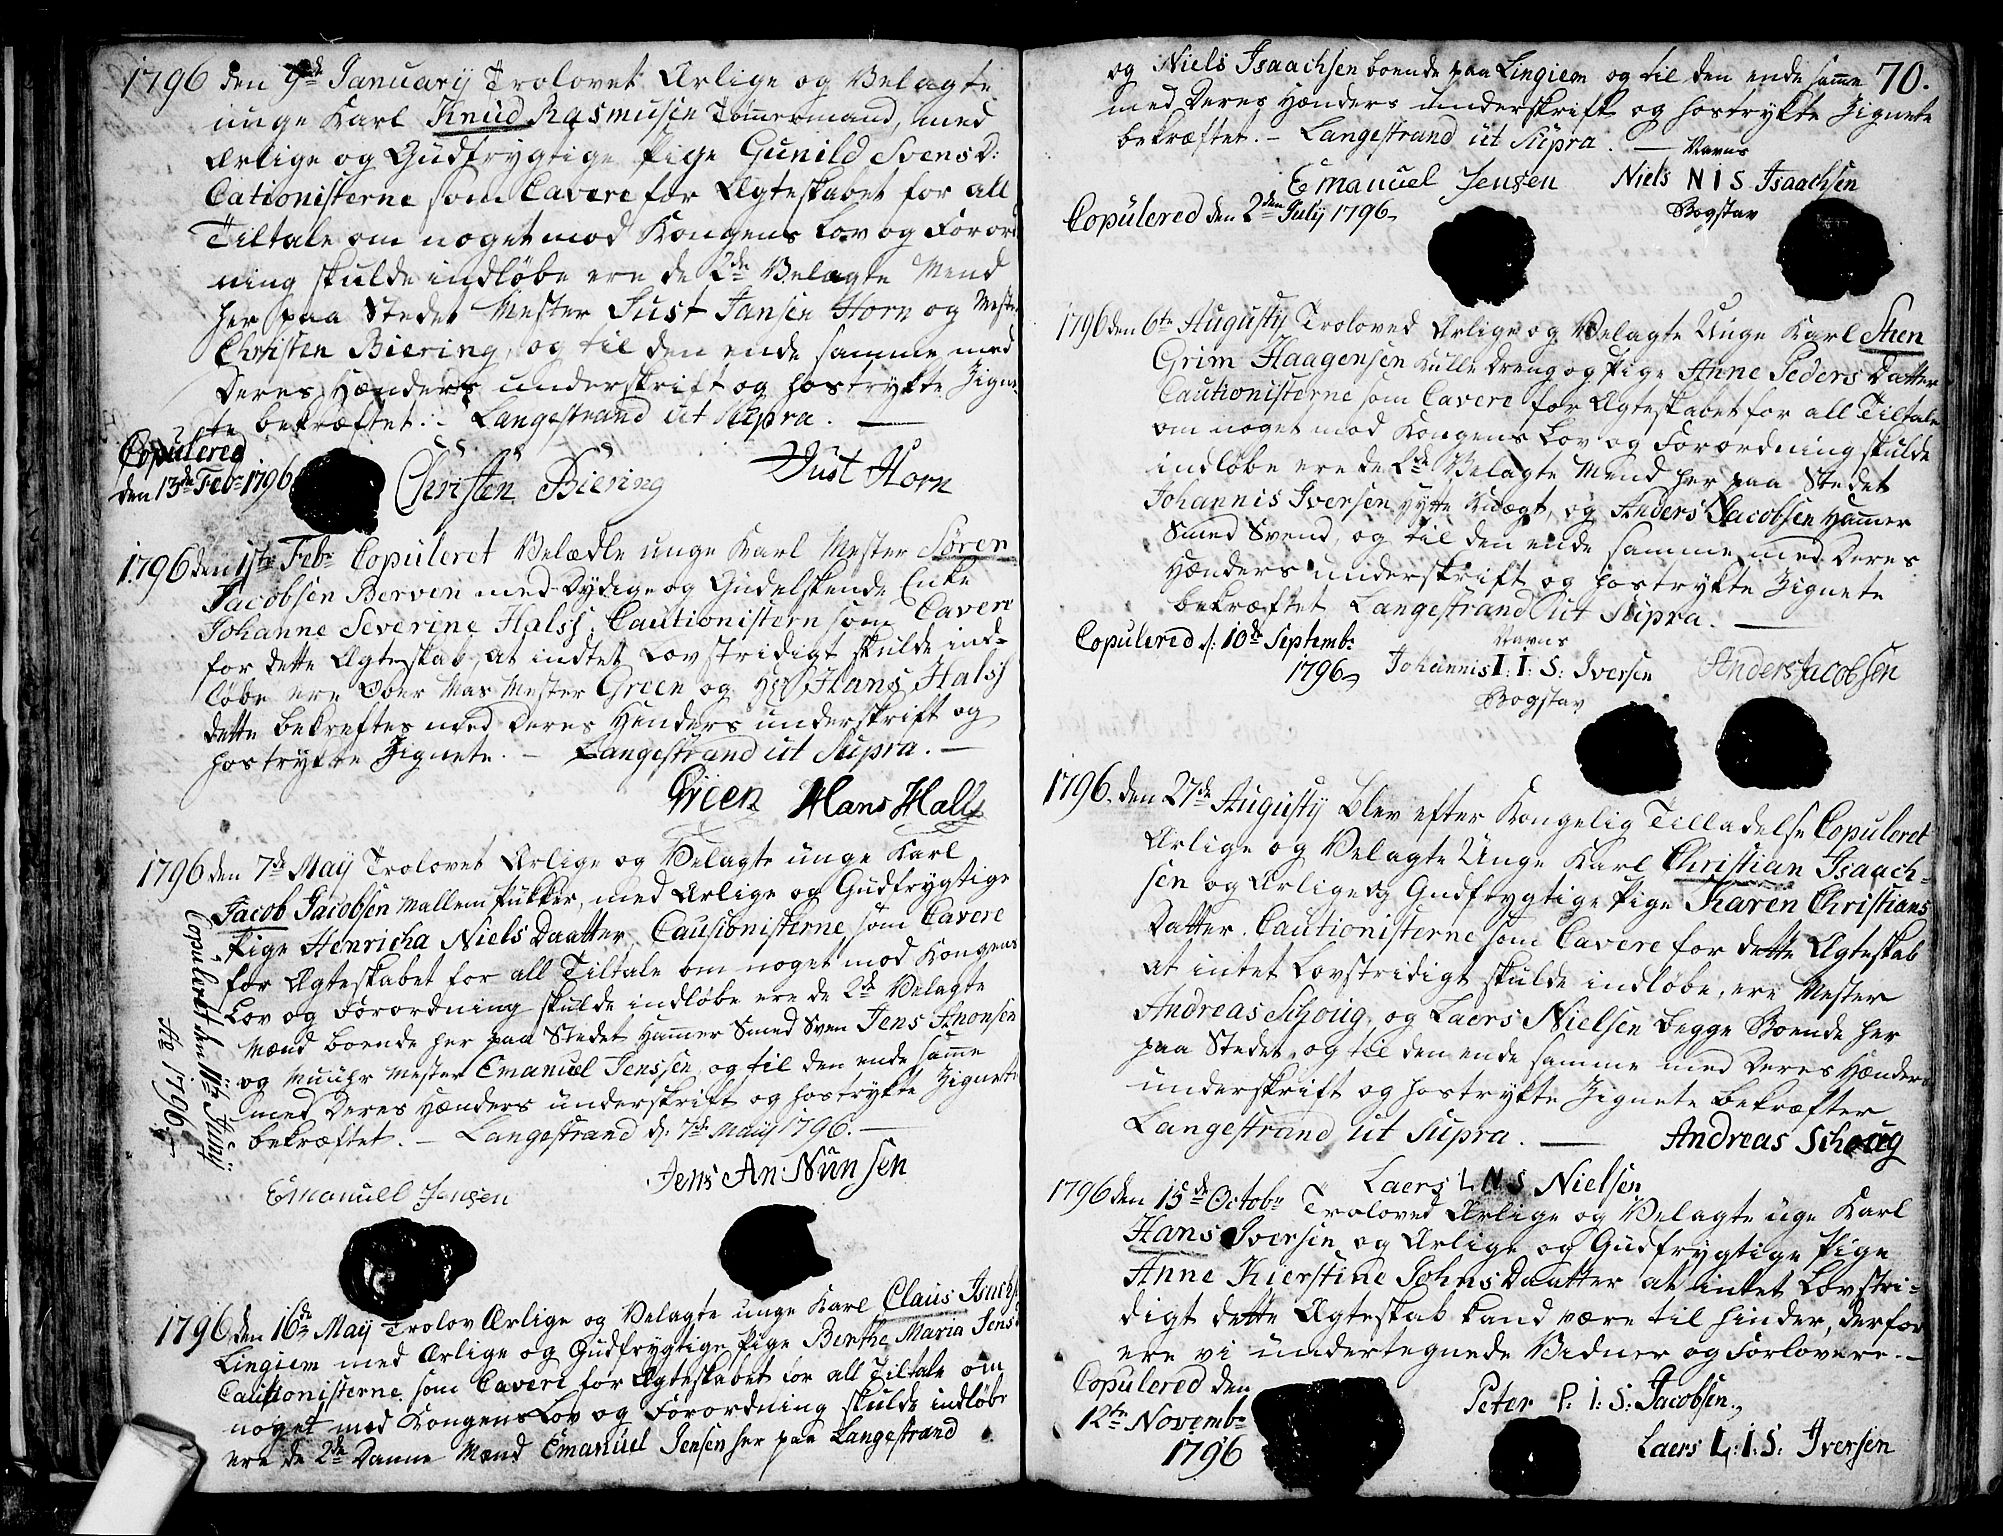 1796 den 9de January Trolovet Ærlige og Velagte
unge Karl Knud Rasmusen Tømmermand, med
Ærlige og Gudfrygtige Pige Gunild Svens D:
Cationisterne som Cavere for Ægteskabet for all
Tiltale om noget mod Kongens Lov og Foror
ning skulde indløbe ere de 2de Velagte Mend
her paa Stedet Mester Just Jansen Horn og Mester
Christen Biering, og til den ende samme med
Deres Hænders underskrift og hostrykte Zigne-
te bekræftet.- Langestrand ut Supra.
Copulered
den 13de Febr 1796
Christen Biering Just Horn
1796 den 1ste Febr Copuleret Velædle unge Karl Mester Sören
Jacobsen Berven med Dydige og Gudelskende Enke
Johanne Severine Halsj. Cautionistern som Cavere
for dette Ægteskab at indtet Lovstridigt skulde ind-
løbe ere Ober Mas Mester Green og Hr Hans Halsj
dette bekreftes med Deres Henders underskrift og
hostrykte Zignete. - Langestrand ut Supra. -
Green Hans Halls
1796 den 7de May Trolovet Ærlige og Velagte unge Karl
Jacob Jacobsen Mallem Pukker, med Ærlige og Gudfrygtige
Pige Henricha Niels Daatter, Causionisterne som Cavere
for Ægteskabet for all Tiltale om noget mod Kongens
Lov og Forordning skulde indløbe ere de 2de Velagte
Mænd boende her paa Stedet Hamer Smed Sven Jens Anonsen
og Muuhr Mester Emanuel Jenssen, og til den ende samme
med Deres Hænders underskrift og hostrykte Zignete
bekræftet. - Langestrand d: 7de May 1796. -
Copulerit den 11te Junÿ
Ao 1796
Emanuell Jensen Jens An: Nunsen
1796 den 16de May Trolov Ærlige og Velagte unge Karl Claus Isachs
Lingiem med Ærlige og Gudfrygtige Pige Berthe Maria Jens
Cautionisterne som Cavere for Ægteskabet for all Tiltale om
noget mod Kongens Lov og Forordning skulde indløbe
ere de 2de Danne Mænd Emanuel Jensen her paa Langestrand
og Niels Isaachsen boende paa Lingiem og til den ende same 70.
med Deres Hænders underskrift og hostrykte Zignete
bekræftet. - Langestrand ut Supra. -
Navns
Emanuel Jensen Niels N I S Isaachsen
Bogstav
Copulered den 2den July 1796
1796 den 6te Augusty Troloved Ærlige og Velagte Unge Karl Sten
Grim Haagensen Kulle Dreng og Pige Anne Peders Datter
Cautionisterne som Cavere for Ægteskabet for all Tiltale
om noget mod Kongens Lov og Forordning skulde
indløbe ere de 2de Velagte Mend her paa Stedet
Johannis Iversen Hytte Knægt, og Anders Jacobsen Hamer
Smed Svend, og til den ende samme med Deres
Hænders underskrift og hostrykte Zignete
bekræftet Langestrand ut Supra. -
Copulered d: 10de Septembr
1796
Navns
Johannis I: I: S: Iversen Anders Jacobsen
Bogstav
1796. den 27de Augusty Blev efter Kongelig Tilladelse Copuleret
Ærlige og Velagte Unge Karl Christian Isaach-
sen og Ærlige og Gudfrygtige Pige Karen Christians
Datter. Cautionisterne som Cavere for dette Ægteskab
at intet Lovstridigt skulde indløbe, ere Mester
Andreas Schoug, og Laers Nielsen begge Boende her
paa Stedet, og til den ende samme med Deres Hænders
underskrift og hostrykte Zignete bekræfter
Langestrand ut Supra. - Andreas Schoug
Laers L N S Nielsen
1796 den 15de Octobr Troloved Ærlige og Velagte uge Karl
Hans Iversen og Ærlige og Gudfrygtige Pige
Anne Kierstine Johns Daatter at intet Lovstri-
digt dette Ægteskab kand være til hinder, derfor
ere vi undertegnede Vidner og Forlovere. -
Copulered den
12te Novembr
1796
Peter P. I: S: Jacobsen
Laers L: I: S: Iversen